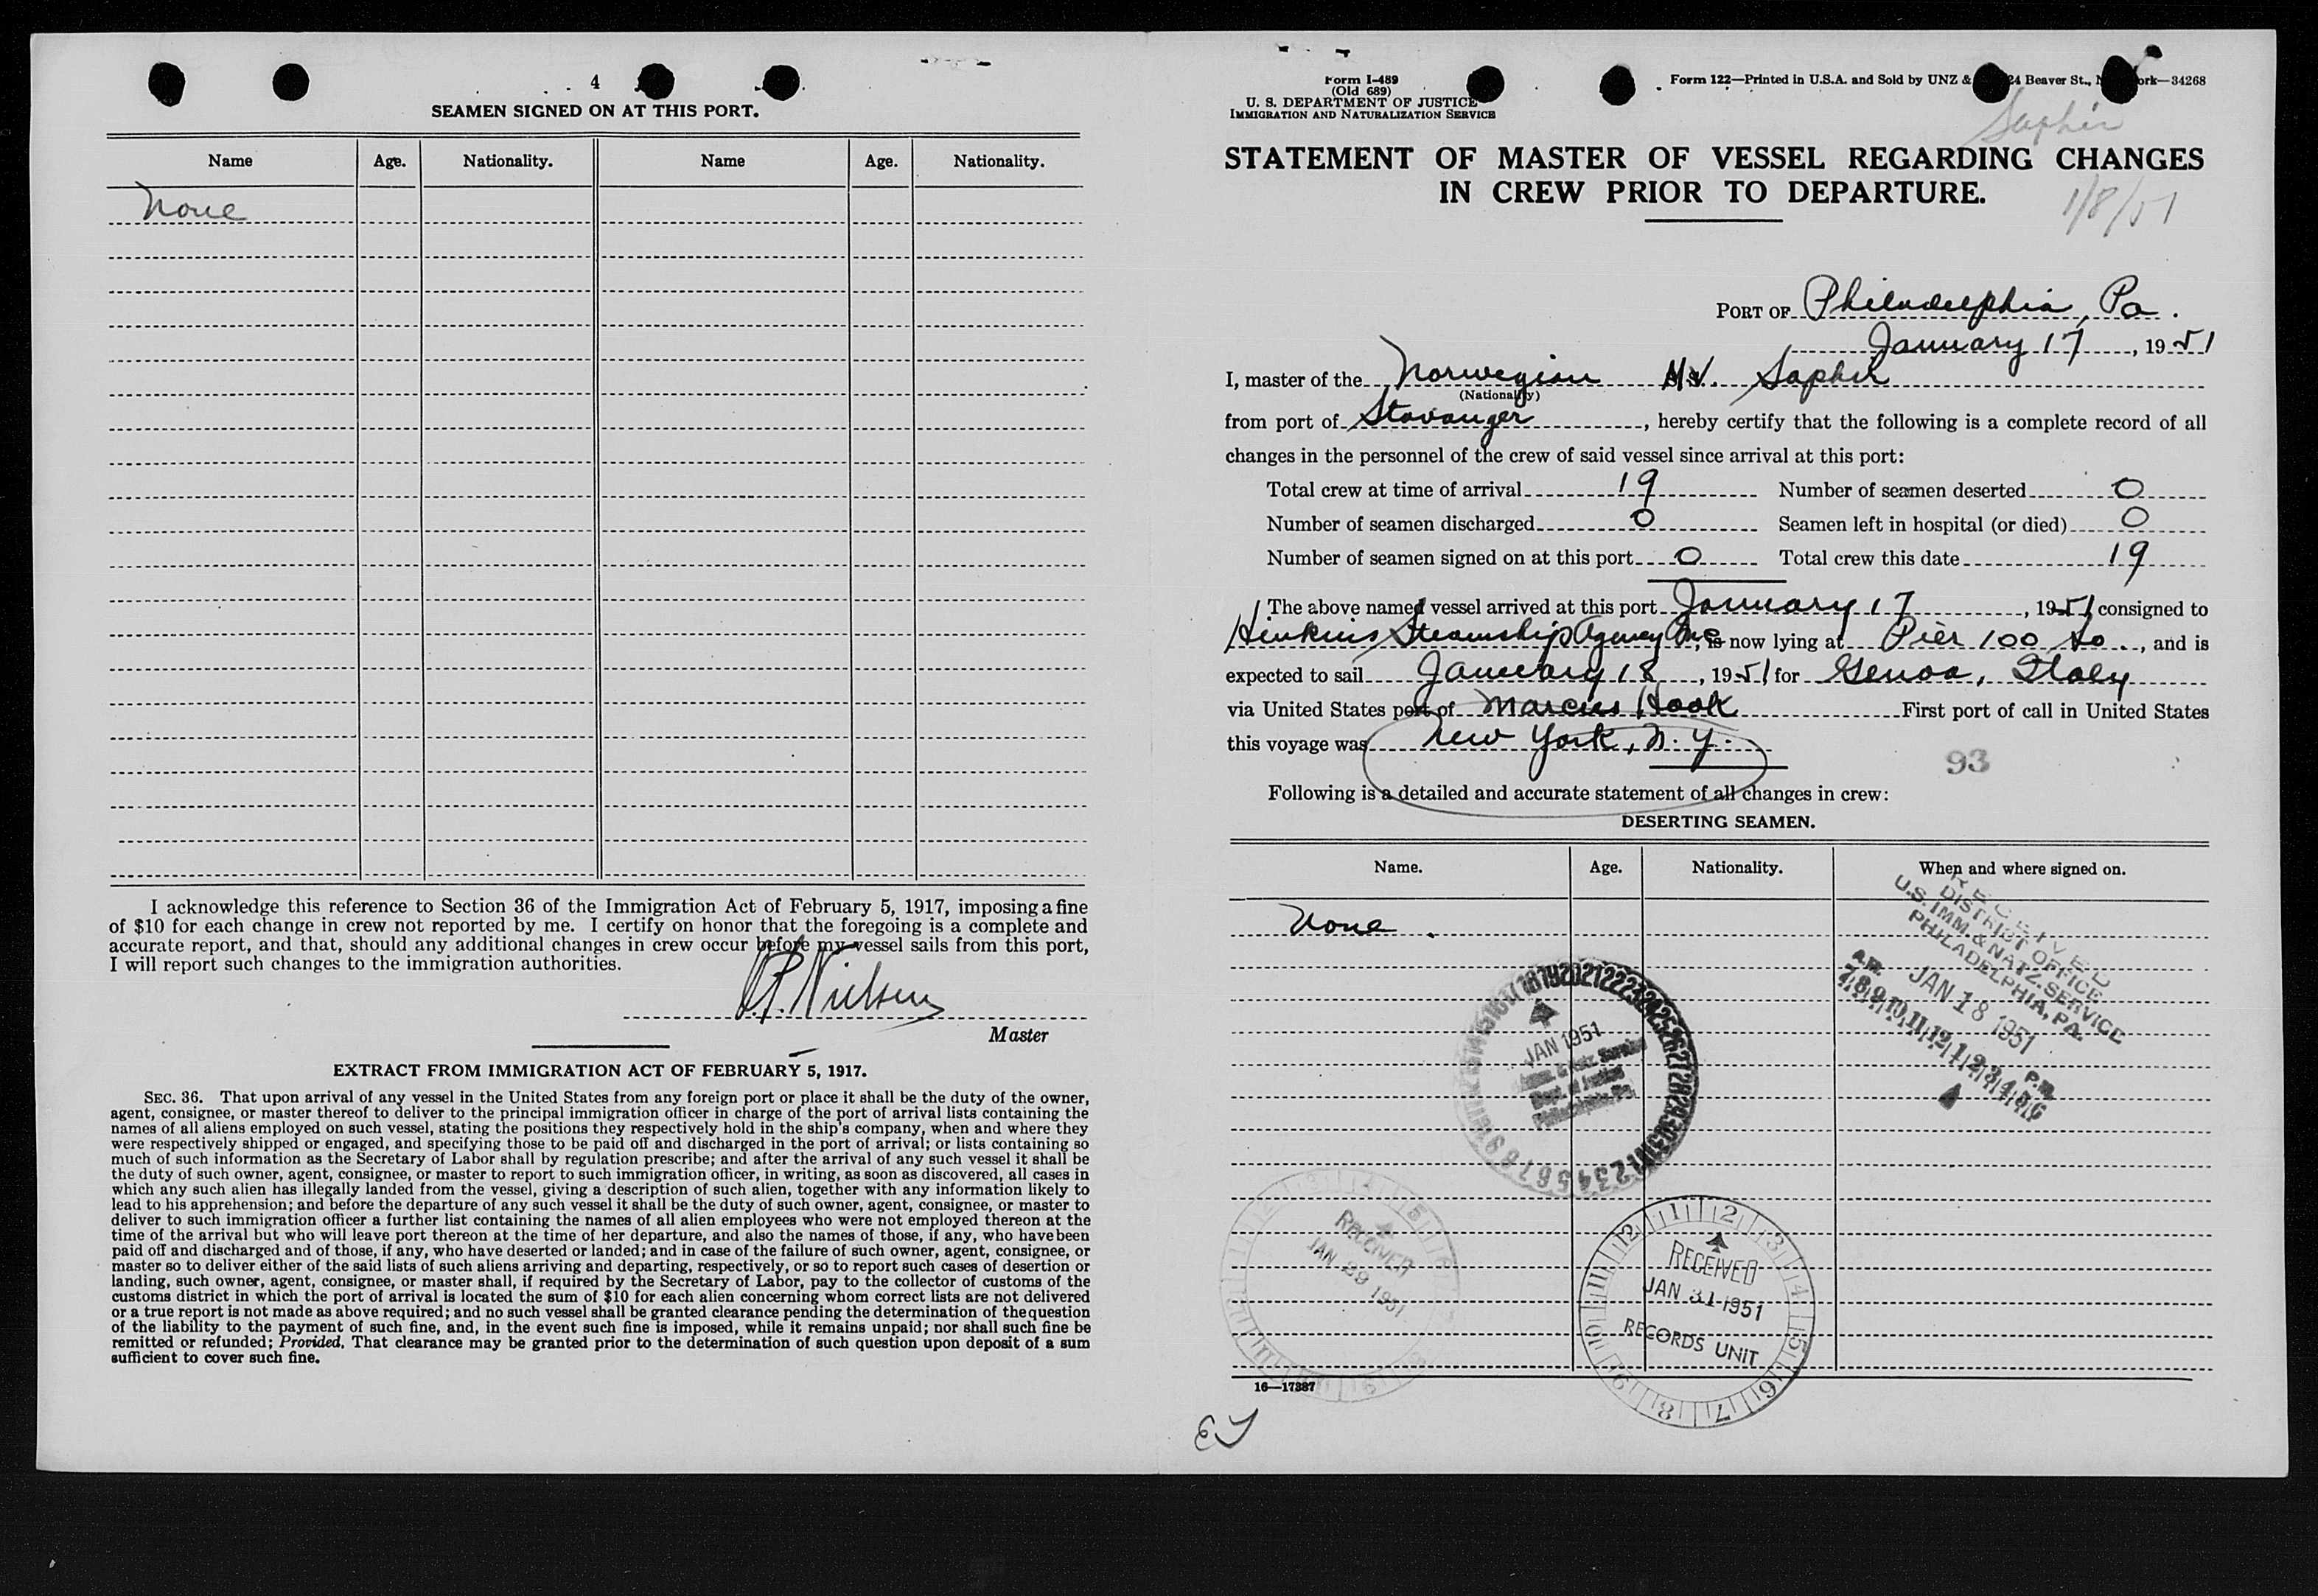 4
SEAMEN SIGNED ON AT THIS PORT.
Name Age. Nationality. Name Age. Nationality.
None
I acknowledge this reference to Section 36 of the Immigration Act of February 5, 1917, imposing a fine
of $10 for each change in crew not reported by me. I certify on honor that the foregoing is a complete and
accurate report, and that, should any additional changes in crew occur before my vessel sails from this port,
I will report such changes to the immigration authorities.
Nielsen
Master
EXTRACT FROM IMMIGRATION ACT OF FEBRUARY 5, 1917.
SEC. 36. That upon arrival of any vessel in the United States from any foreign port or place it shall be the duty of the owner,
agent, consignee, or master thereof to deliver to the principal immigration officer in charge of the port of arrival lists containing the
names of all aliens employed on such vessel, stating the positions they respectively hold in the ship's company, when and where they
were respectively shipped or engaged, and specifying those to be paid off and discharged in the port of arrival; or lists containing so
much of such information as the Secretary of Labor shall by regulation prescribe; and after the arrival of any such vessel it shall be
the duty of such owner, agent, consignee, or master to report to such immigration officer, in writing, as soon as discovered, all cases in
which any such alien has illegally landed from the vessel, giving a description of such alien, together with any information likely to
lead to his apprehension; and before the departure of any such vessel it shall be the duty of such owner, agent, consignee, or master to
deliver to such immigration officer a further list containing the names of all alien employees who were not employed thereon at the
time of the arrival but who will leave port thereon at the time of her departure, and also the names of those, if any, who have been
paid off and discharged and of those, if any, who have deserted or landed; and in case of the failure of such owner, agent, consignee, or
master so to deliver either of the said lists of such aliens arriving and departing, respectively, or so to report such cases of desertion or
landing, such owner, agent, consignee, or master shall, if required by the Secretary of Labor, pay to the collector of customs of the
customs district in which the port of arrival is located the sum of $10 for each alien concerning whom correct lists are not delivered
or a true report is not made as above required; and no such vessel shall be granted clearance pending the determination of the question
of the liability to the payment of such fine, and, in the event such fine is imposed, while it remains unpaid; nor shall such fine be
remitted or refunded; Provided, That clearance may be granted prior to the determination of such question upon deposit of a sum
sufficient to cover such fine.
Form I-489
(Old 689)
U. S. DEPARTMENT OF JUSTICE
IMMIGRATION AND NATURALIZATION SERVICE
Form 122—Printed in U.S.A. and Sold by UNZ & 24 Beaver St., N ork—34268
Saphir
STATEMENT OF MASTER OF VESSEL REGARDING CHANGES
IN CREW PRIOR TO DEPARTURE.
1/8/51
PORT OF Philadelphia, Pa.
January 17, 1951
I, master of the Norwegian M.V. Saphir
(Nationality)
from port of Stavanger, hereby certify that the following is a complete record of all
changes in the personnel of the crew of said vessel since arrival at this port:
Total crew at time of arrival 19 Number of seamen deserted 0
Number of seamen discharged 0 Seamen left in hospital (or died) 0
Number of seamen signed on at this port 0 Total crew this date 19
The above named vessel arrived at this port January 17, 1951 consigned to
Hinkins Steamship Agency Inc, is now lying at Pier 100 So., and is
expected to sail January 18, 1951 for Genoa, Italy
via United States port of Marcus Hook First port of call in United States
this voyage was New York, N.Y.
93
Following is a detailed and accurate statement of all changes in crew:
DESERTING SEAMEN.
Name. Age. Nationality. When and where signed on.
None.
RECEIVED
DISTRICT OFFICE
U.S. IMM. & NATZ. SERVICE
PHILADELPHIA, PA.
JAN 18 1951
A.M. 7 8 9 10 11 12 1 2 3 4 5 6 P.M.
JAN 1951
Imm. & Natz. Service
Dept. of Justice
Philadelphia, Pa.
RECEIVED
JAN 29 1951
RECEIVED
JAN 31 1951
RECORDS UNIT
1 2 3 4 5 6 7 8 9 10 11 12
16—17387